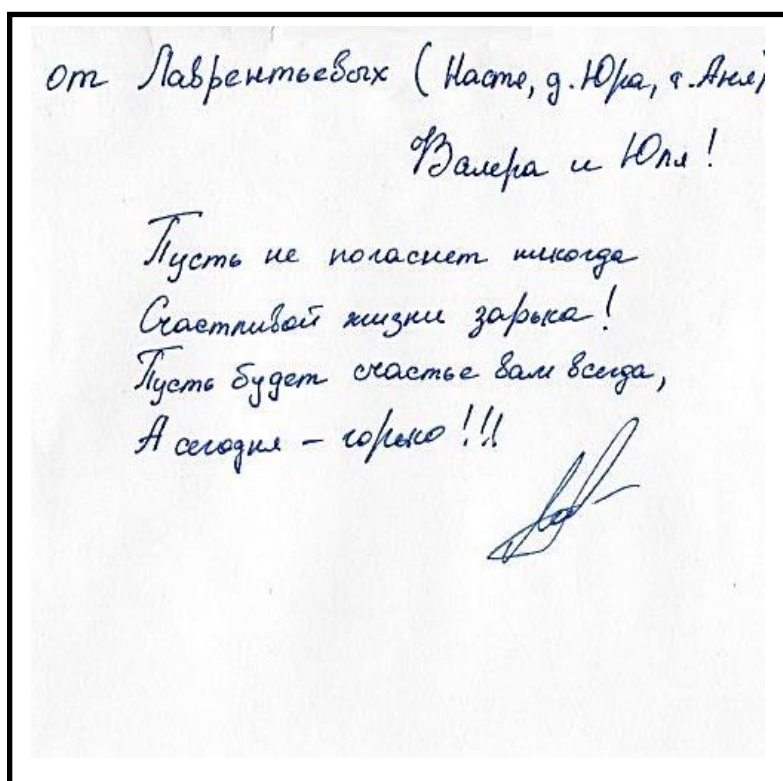 от Лаврентьевых (Настя, д. Юра, т. Аня)
Валера и Юля!
Пусть не погаснет никогда
Счастливой жизни зорька!
Пусть будет счастье вам всегда,
А сегодня – горько!!!